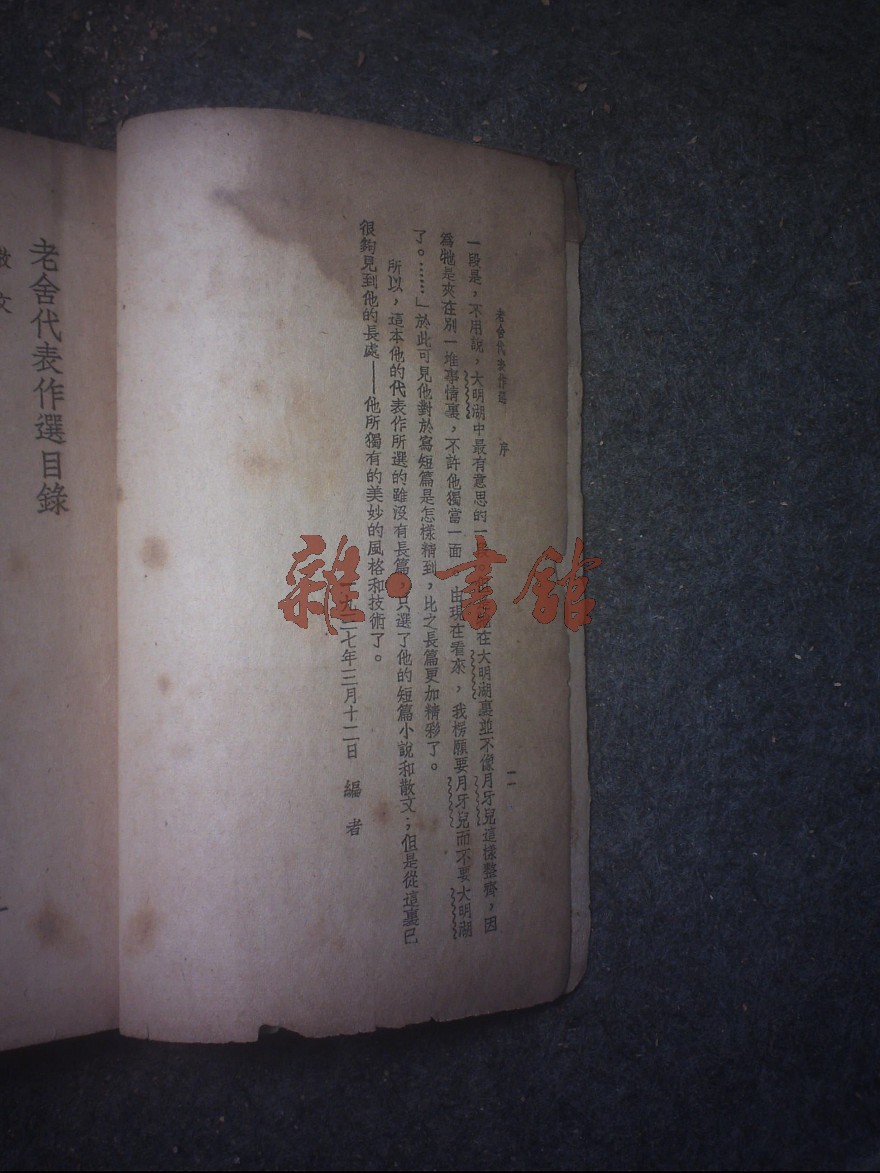 老舍代表作選　序　二
一段是，不用說，大明湖中最有意思的一在大明湖裏並不像月牙兒這樣整齊，因
爲牠是夾在別一堆事情裏，不許他獨當一面由現在看來，我楞願要月牙兒而不要大明湖
了。……」於此可見他對於寫短篇是怎樣精到，比之長篇更加精彩了。
所以，這本他的代表作所選的雖沒有長篇，只選了他的短篇小說和散文；但是從這裏已
很夠見到他的長處——他所獨有的美妙的風格和技術了。
九三七年三月十二日　編者
老舍代表作選目錄
散文
雜·書館